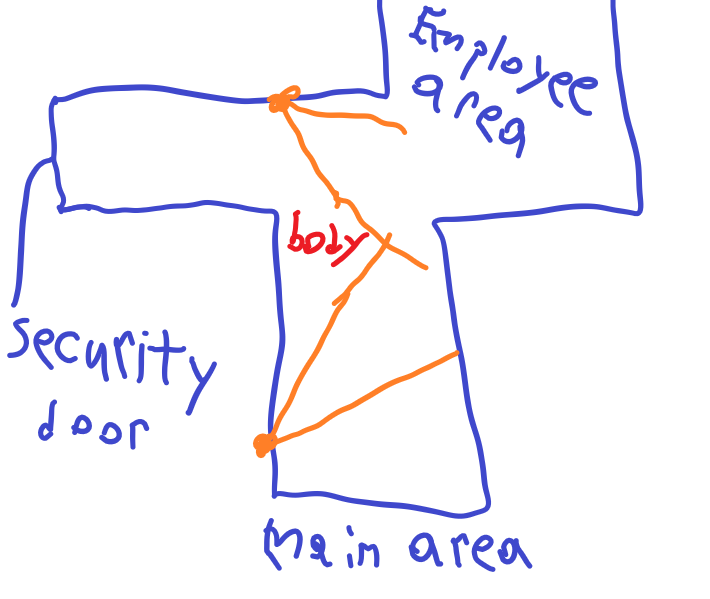 Employee
area
body
security
door
Main area